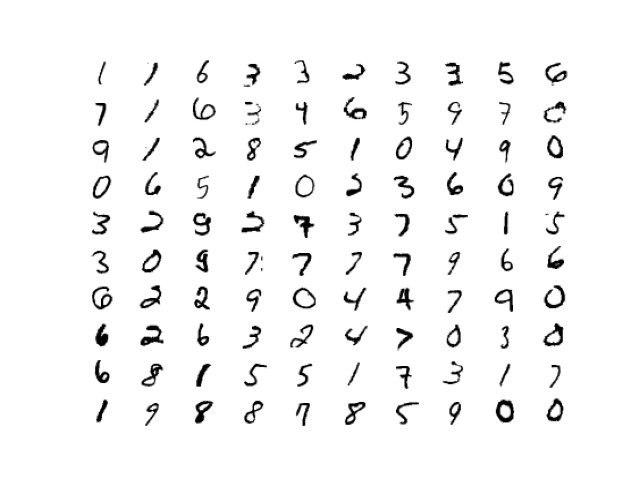 1 1 6 3 3 2 3 3 5 6
7 1 6 3 4 6 5 9 7 0
9 1 2 8 5 1 0 4 9 0
0 6 5 1 0 2 3 6 0 9
3 2 9 2 7 3 7 5 1 5
3 0 9 7 7 7 7 9 6 6
6 2 2 9 0 4 4 7 9 0
6 2 6 3 2 4 7 0 3 0
6 8 1 5 5 1 7 3 1 7
1 9 8 8 7 8 5 9 0 0